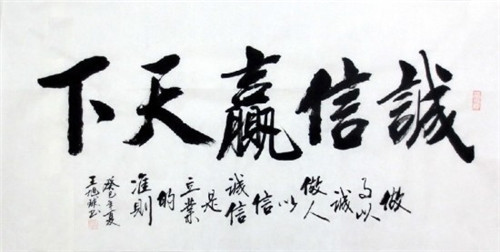 誠信贏天下
做
事以
誠
做人
以
信
誠信
是
立業
的
准則
癸巳年夏
王